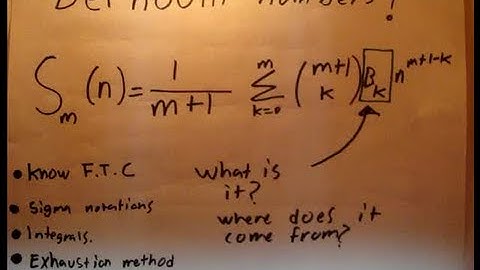 Bernoulli numbers!
S_m (n) = 1/(m+1) Σ_{k=0}^{m} (m+1 k) B_k n^{m+1-k}
• Know F.T.C
• Sigma notations
• Integrals.
• Exhaustion method
what is
it?
where does it
come from?